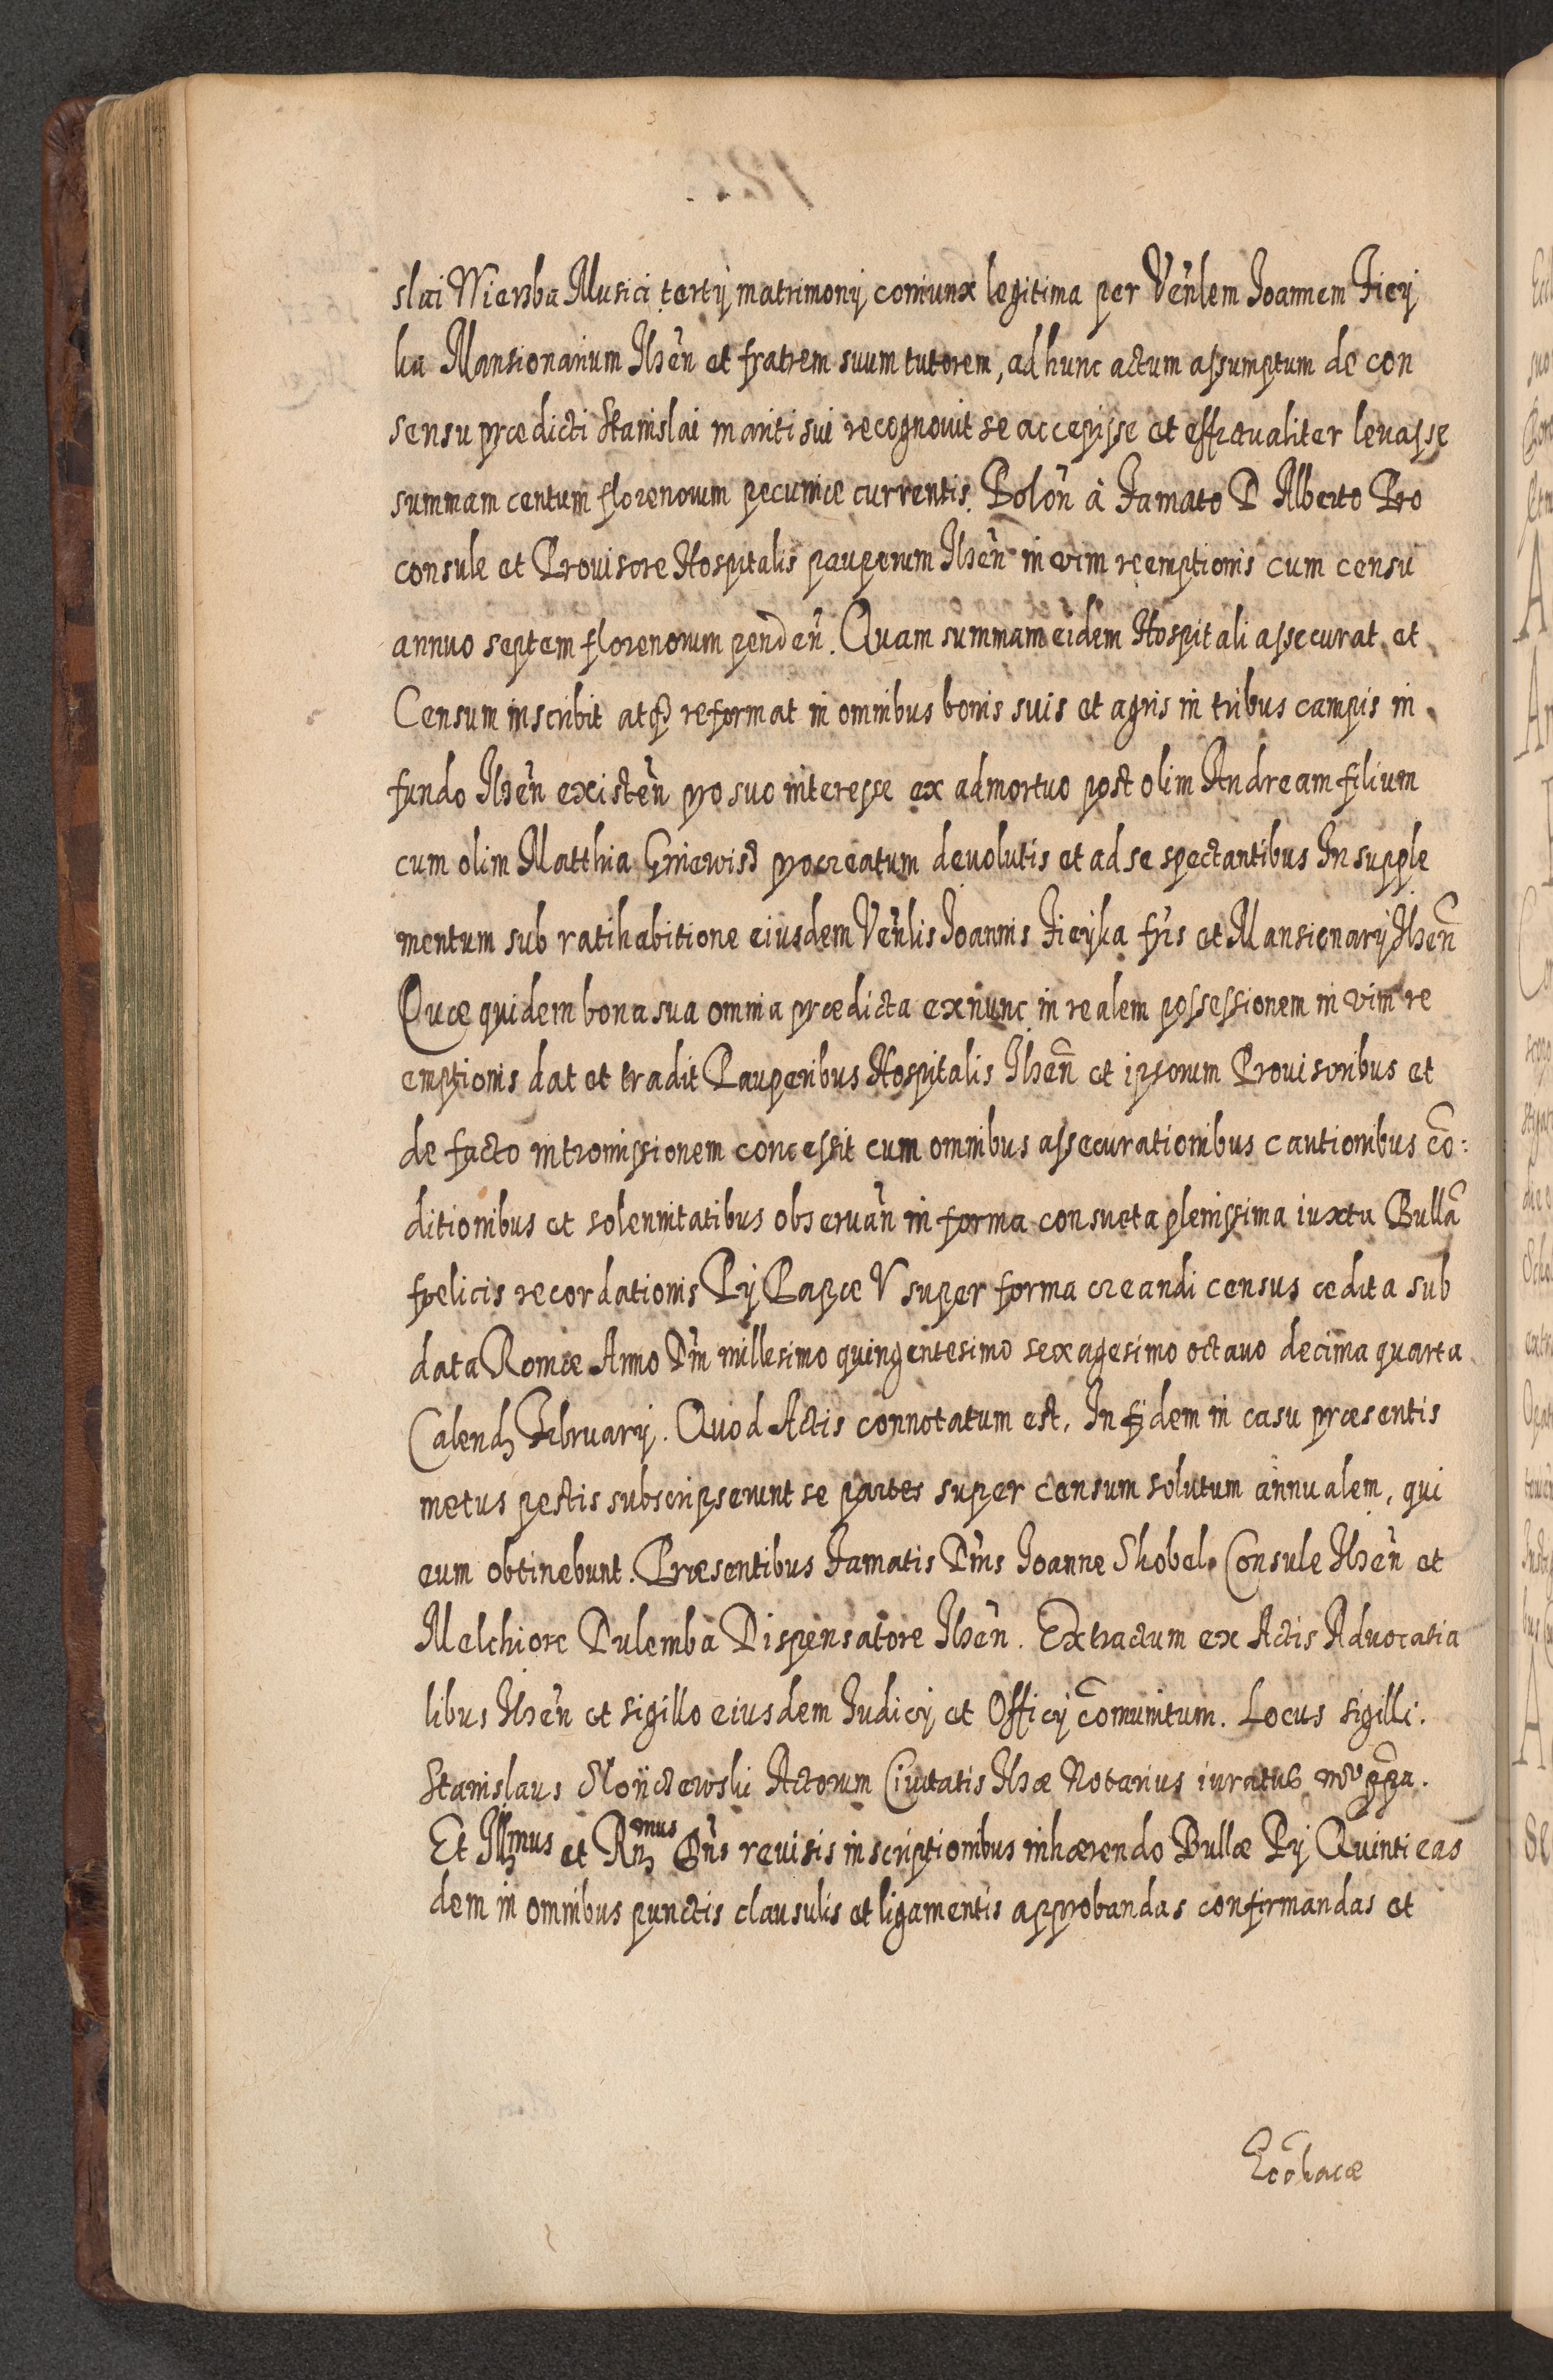 slai Wierzba Musici tertij matrimonij coniunx legitima per Venlem Joannem Ficy
ka Mansionarium Ilzen et fratrem suum tutorem, ad hunc actum assumptum de con
sensu prædicti Stanislai mariti sui recognouit se accepisse et effectualiter leuasse
summam centum florenorum pecuniæ currentis. Polon à Famato D Alberto Pro
consule et Prouisore Hospitalis pauperum Ilzen in vim reemptionis cum censu
annuo septem florenorum penden. Quam summam eidem Hospitali assecurat et
Censum inscribit atq3 reformat in omnibus bonis suis et agris in tribus campis in
fundo Ilzen existen pro suo interesse ex admortuo post olim Andream filium
cum olim Matthia Gniewisz procreatum deuolutis et ad se spectantibus In supple
mentum sub ratihabitione eiusdem Venlis Joannis Ficyka fris et Mansionarij Ilzen
Quæ quidem bona sua omnia prædicta ex nunc in realem possessionem in vim re
emptionis dat et tradit Pauperibus Hospitalis Ilzen et ipsorum Prouisoribus et
de facto intromissionem concessit cum omnibus assecurationibus cautionibus cō:
ditionibus et solennitatibus obseruan in forma consueta plenissima iuxta Bullā
fœlicis recordationis Pij Papæ V super forma creandi census ædita sub
data Romæ Anno Dm millesimo quingentesimo sexagesimo octauo decima quarta
Calend Februarij. Quod Actis connotatum est. In fidem in casu præsentis
metus pestis subscripserunt se partes super censum solutum annualem, qui
eum obtinebunt. Præsentibus Famatis Dnis Joanne Skobel Consule Ilzen et
Melchiore Dulemba Dispensatore Ilzen. Extractum ex Actis Aduocatia
libus Ilzen et sigillo eiusdem Iudicij et Officij cōmunitum. Locus sigilli.
Stanislaus Actorum Ciuitatis Ilzæ Notarius iuratus mpp.
Et Illmus et Rnmus Dns reuisis inscriptionibus inhærendo Bullæ Pij Quinti eas
dem in omnibus punctis clausulis et ligamentis approbandas confirmandas et